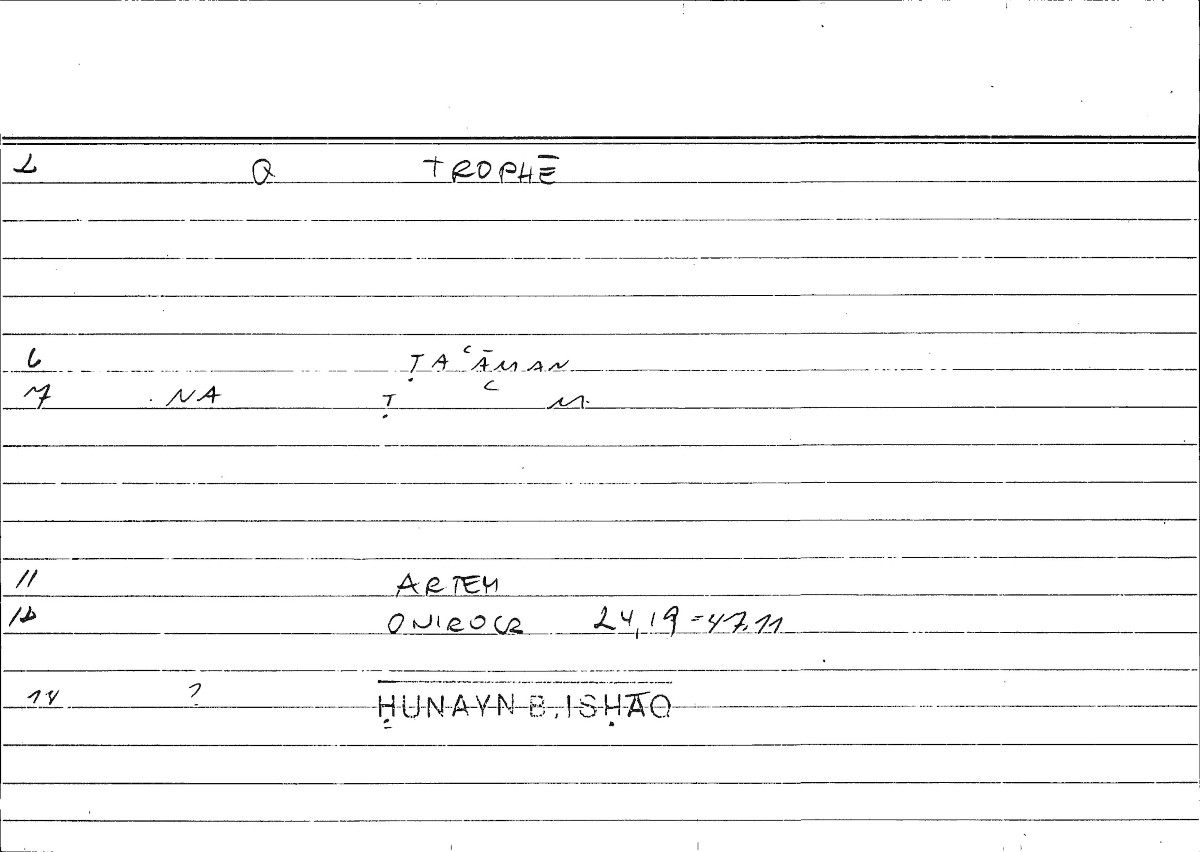 1 Q TROPHĒ
6 ṬAʿĀMAN
7 NA Ṭ ʿ M
11 ARTEM
12 ONIROCR 24,19=47.11
14 ? ḤUNAYN B. ISḤĀQ